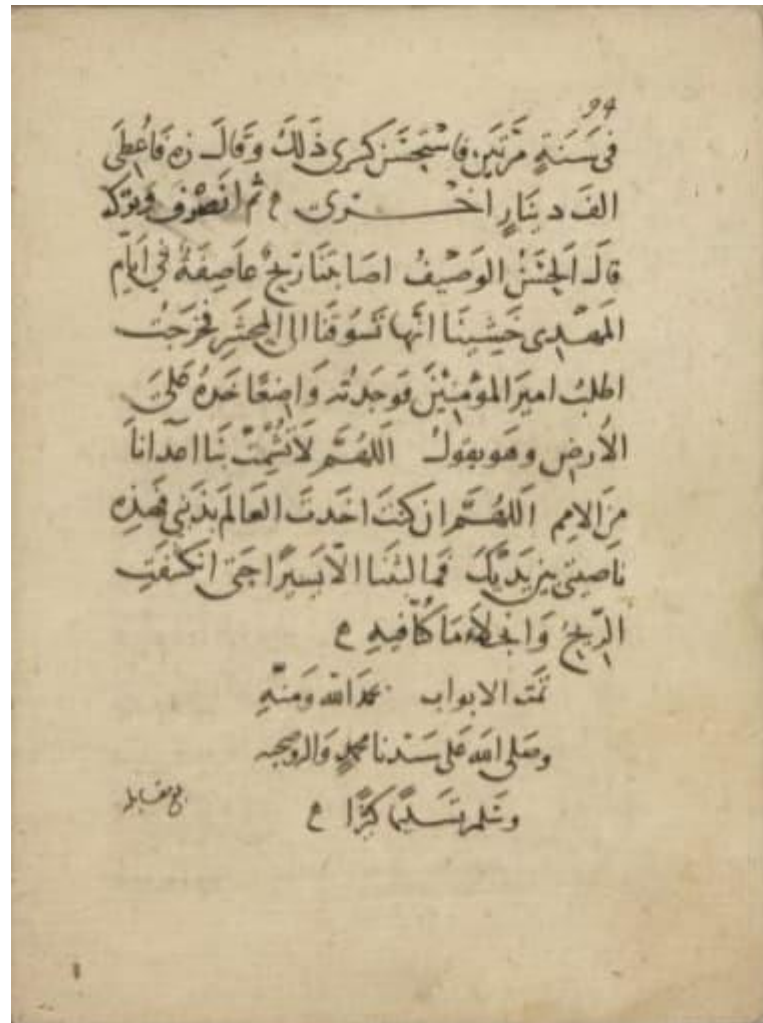 94
في سَنَةٍ مَرَّتَين فاسْتَحسَنَ كسرى ذَلِكَ وَقَالَ زه فَاُعْطِيَ
الفَ دينَارٍ اخرى ثم انصَرَفَ وتركه
قالَ الحَسَنُ الوَصيفُ اصابتنا ريحٌ عاصِفَةٌ في ايّامِ
المَهْدِى خَشِينَا انّها تَسُوقُنا الى المحشَرِ فخرجتُ
اطلبُ اميرَ المؤمِنينَ فوَجَدتُه وَاضِعًا خدهُ عَلَى
الأرضِ وهو يقولُ اللهُمَّ لاَ تُشْمِتْ بنَا اعداناَ
مِنَ الامم اللهُمَّ ان كنتَ اخَدتَ العَالَمَ بذَنبي فهَذِهِ
ناصيتي بين يَدَيكَ فما لبثنَا الاّ يَسِيرًا حَتى انكَشفَتِ
الرّيحُ وَانجلا مَا كُنّا فيهِ
تمت الابواب بحمد الله ومَنِّهِ
وصَلى الله عَلى سَيّدنا محمدٍ واله وصحبه
وسَلم تَسليمًا كثيرًا